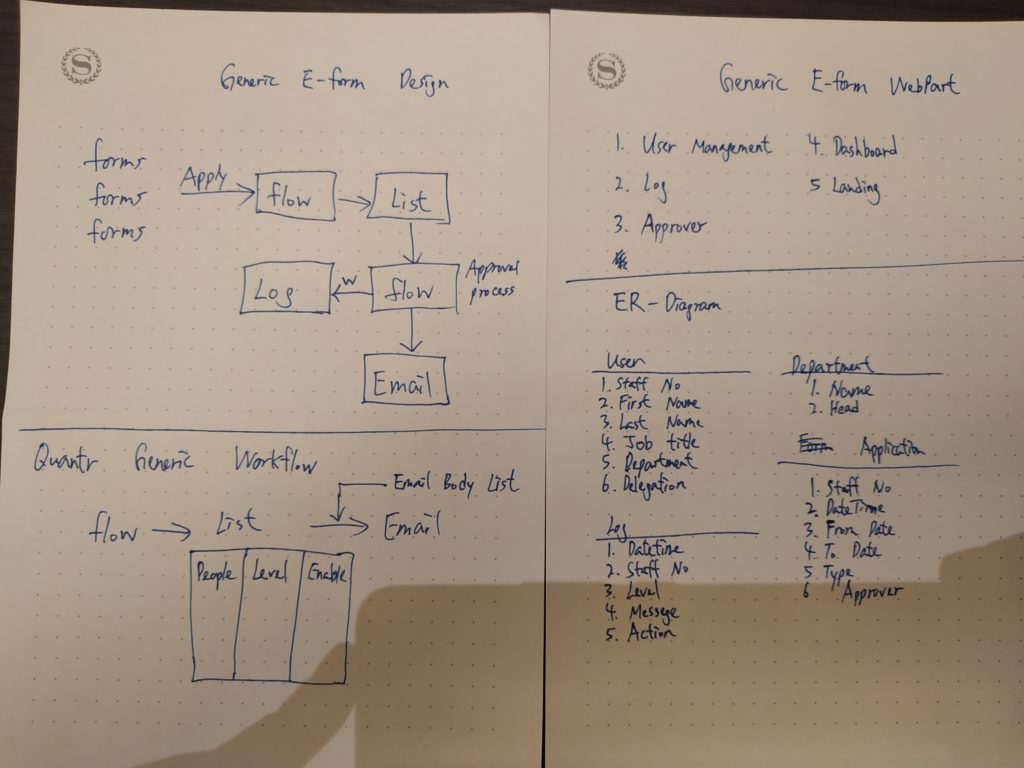 S
Generic E-form Design
forms
forms
forms
Apply
flow
List
Log
W
flow
Approval
process
Email
Quantr Generic Workflow
Email Body List
flow
List
Email
People Level Enable
S
Generic E-form WebPart
1. User Management
2. Log
3. Approver
4. Dashboard
5 Landing
ER-Diagram
User
1. Staff No
2. First Name
3. Last Name
4. Job title
5. Department
6. Delegation
Log
1. Datetime
2. Staff No
3. Level
4. Message
5. Action
Department
1. Name
2. Head
Form Application
1. Staff No
2. DateTime
3. From Date
4. To Date
5 Type
6 Approver